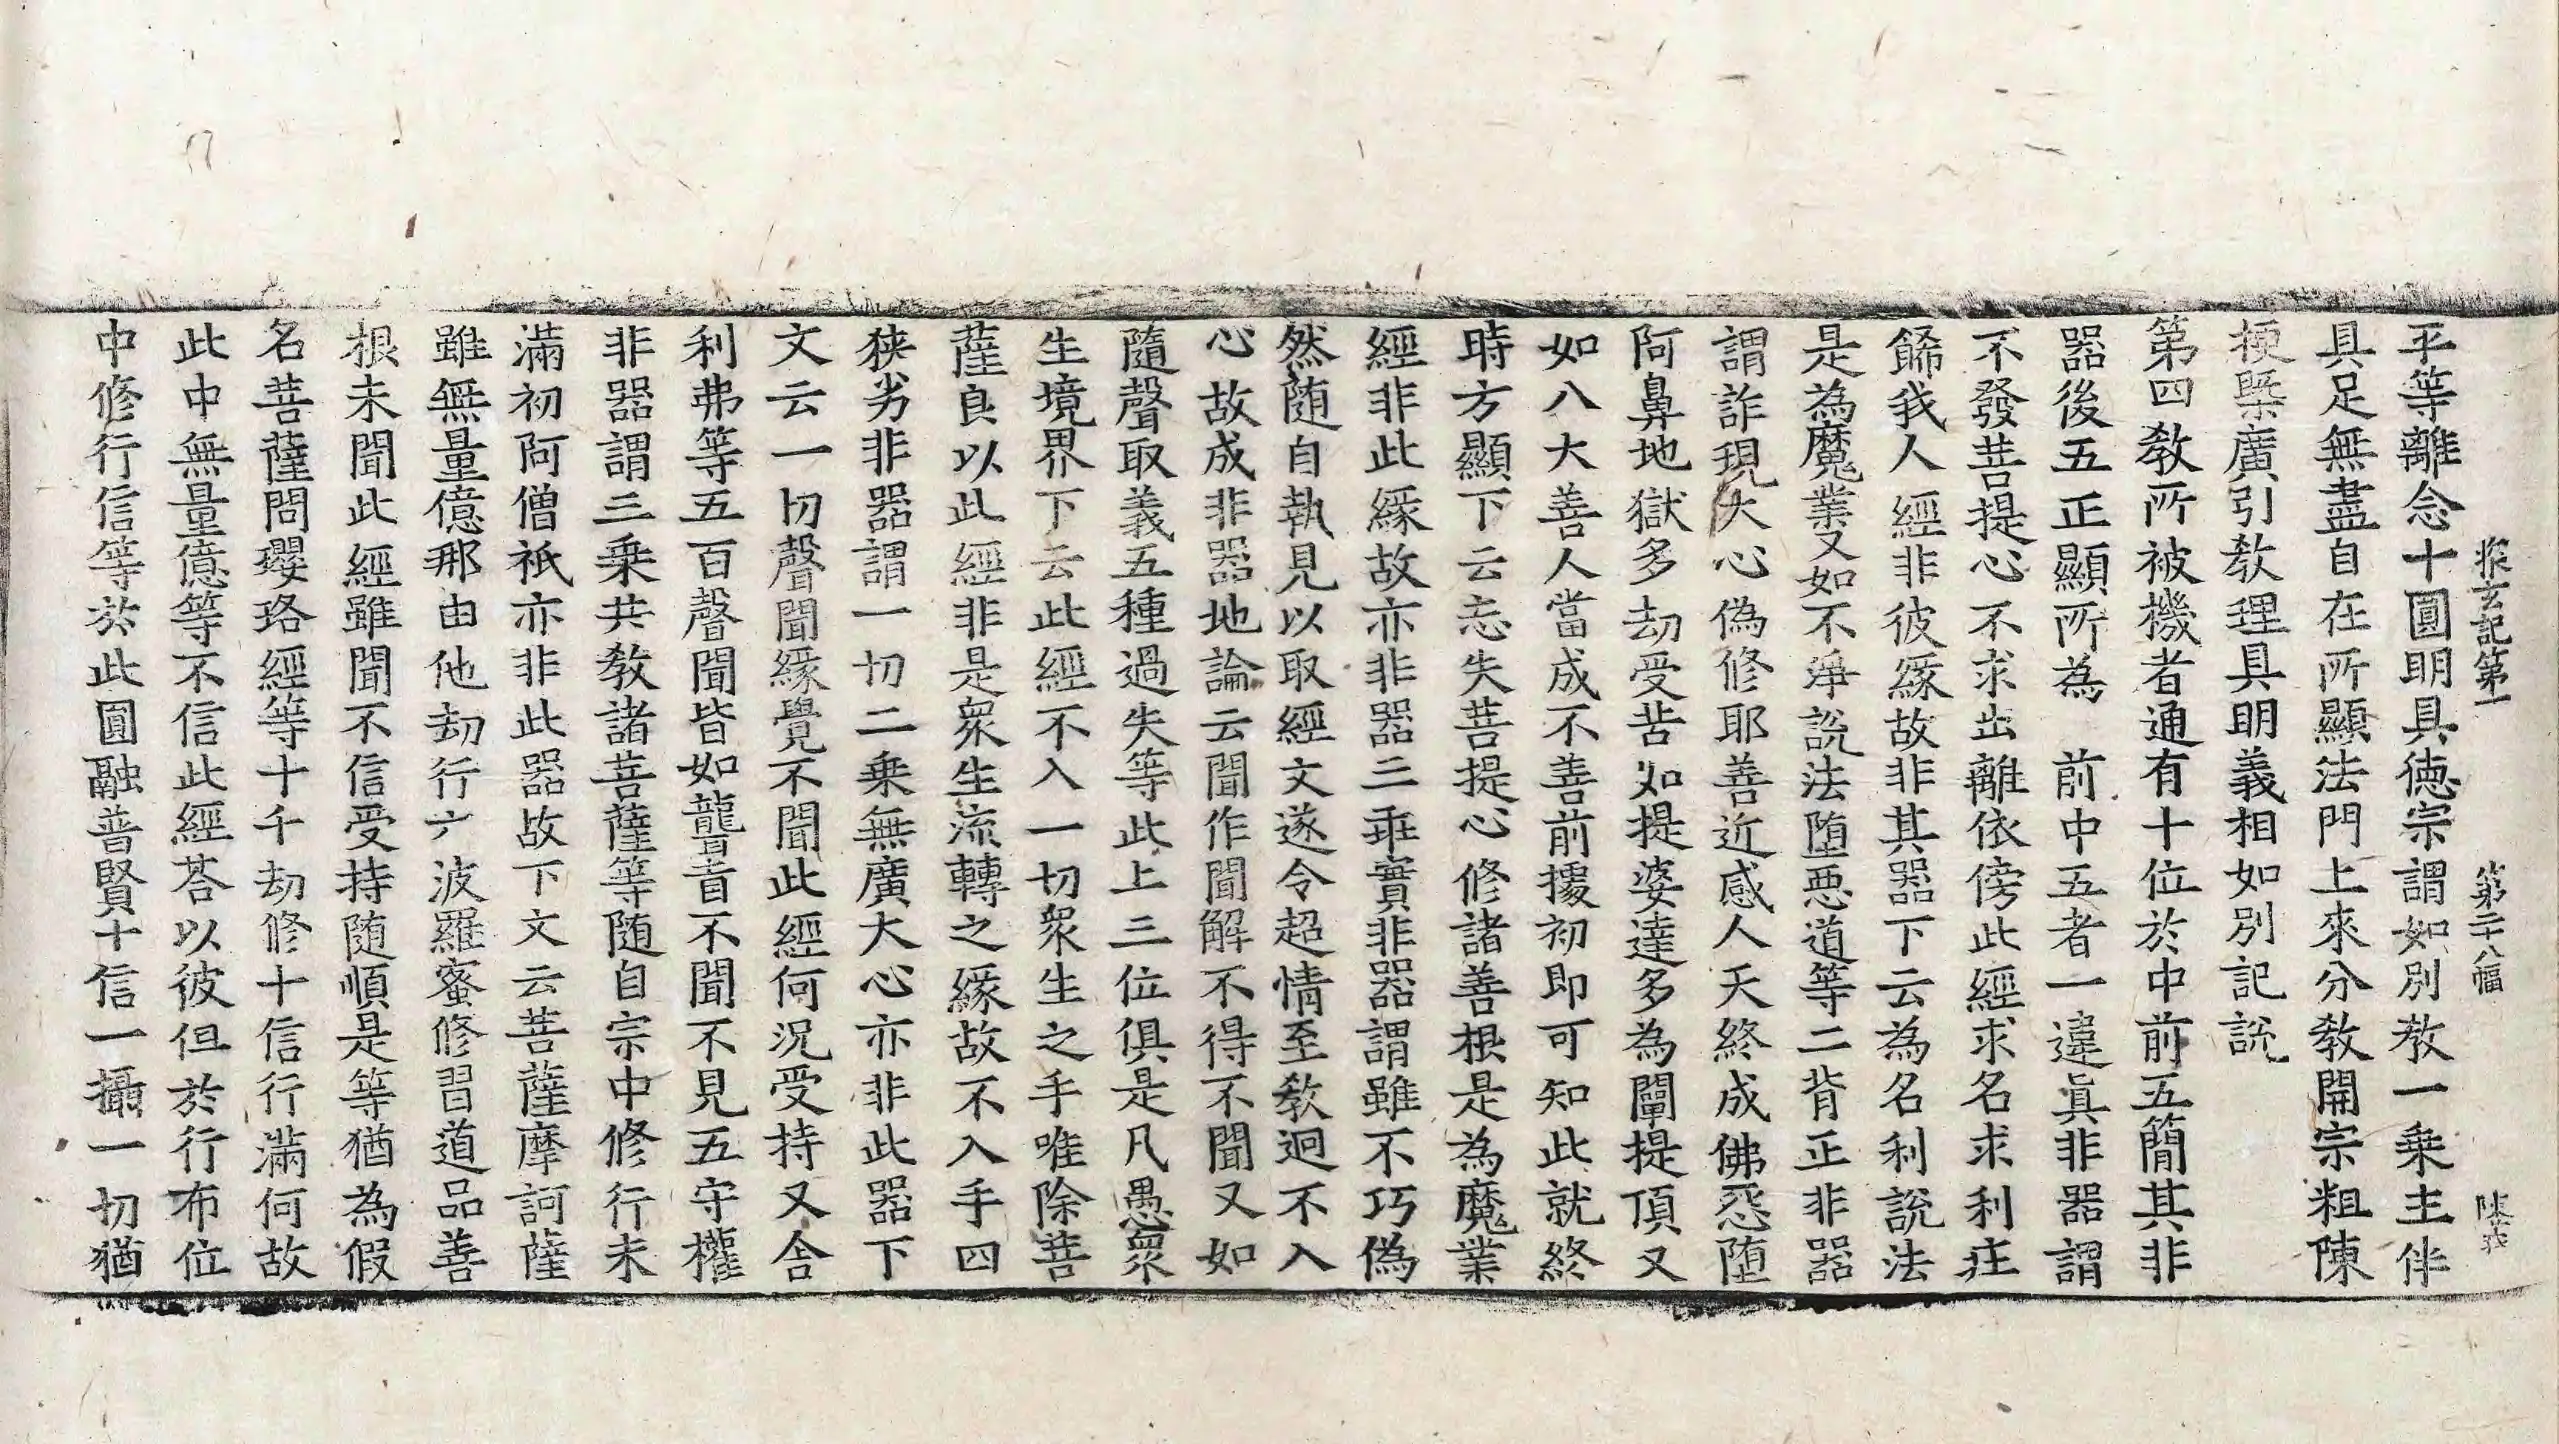 探玄記第一　第二十八幅
平等離念十圓明具德宗謂如別教一乗主伴
具足無盡自在所顯法門上來分教開宗粗陳
梗槩廣引教理具明義相如別記說
第四教所被機者通有十位於中前五簡其非
器後五正顯所為　前中五者一違眞非器謂
不發菩提心不求出離依傍此經求名求利莊
餙我人經非彼緣故非其器下云為名利說法
是為魔業又如不淨說法墮惡道等二背正非器
謂詐現大心偽修耶善近感人天終成佛惡墮
阿鼻地獄多劫受苦如提婆達多為闡提頂又
如八大善人當成不善前據初即可知此就終
時方顯下云忘失菩提心修諸善根是為魔業
經非此緣故亦非器三乖實非器謂雖不巧偽
然随自執見以取經文遂令超情至教迴不入
心故成非器地論云聞作聞解不得不聞又如
隨聲取義五種過失等此上三位俱是凡愚衆
生境界下云此經不入一切衆生之手唯除菩
薩良以此經非是衆生流轉之緣故不入手四
狭劣非器謂一切二乗無廣大心亦非此器下
文云一切聲聞緣覺不聞此經何況受持又舍
利弗等五百聲聞皆如聾盲不聞不見五守權
非器謂三乗共教諸菩薩等随自宗中修行未
滿初阿僧祇亦非此器故下文云菩薩摩訶薩
雖無量億那由他劫行六波羅蜜修習道品善
根未聞此經雖聞不信受持随順是等猶為假
名菩薩問瓔珞經等十千劫修十信行滿何故
此中無量億等不信此經荅以彼但於行布位
中修行信等於此圓融普賢十信一攝一切猶